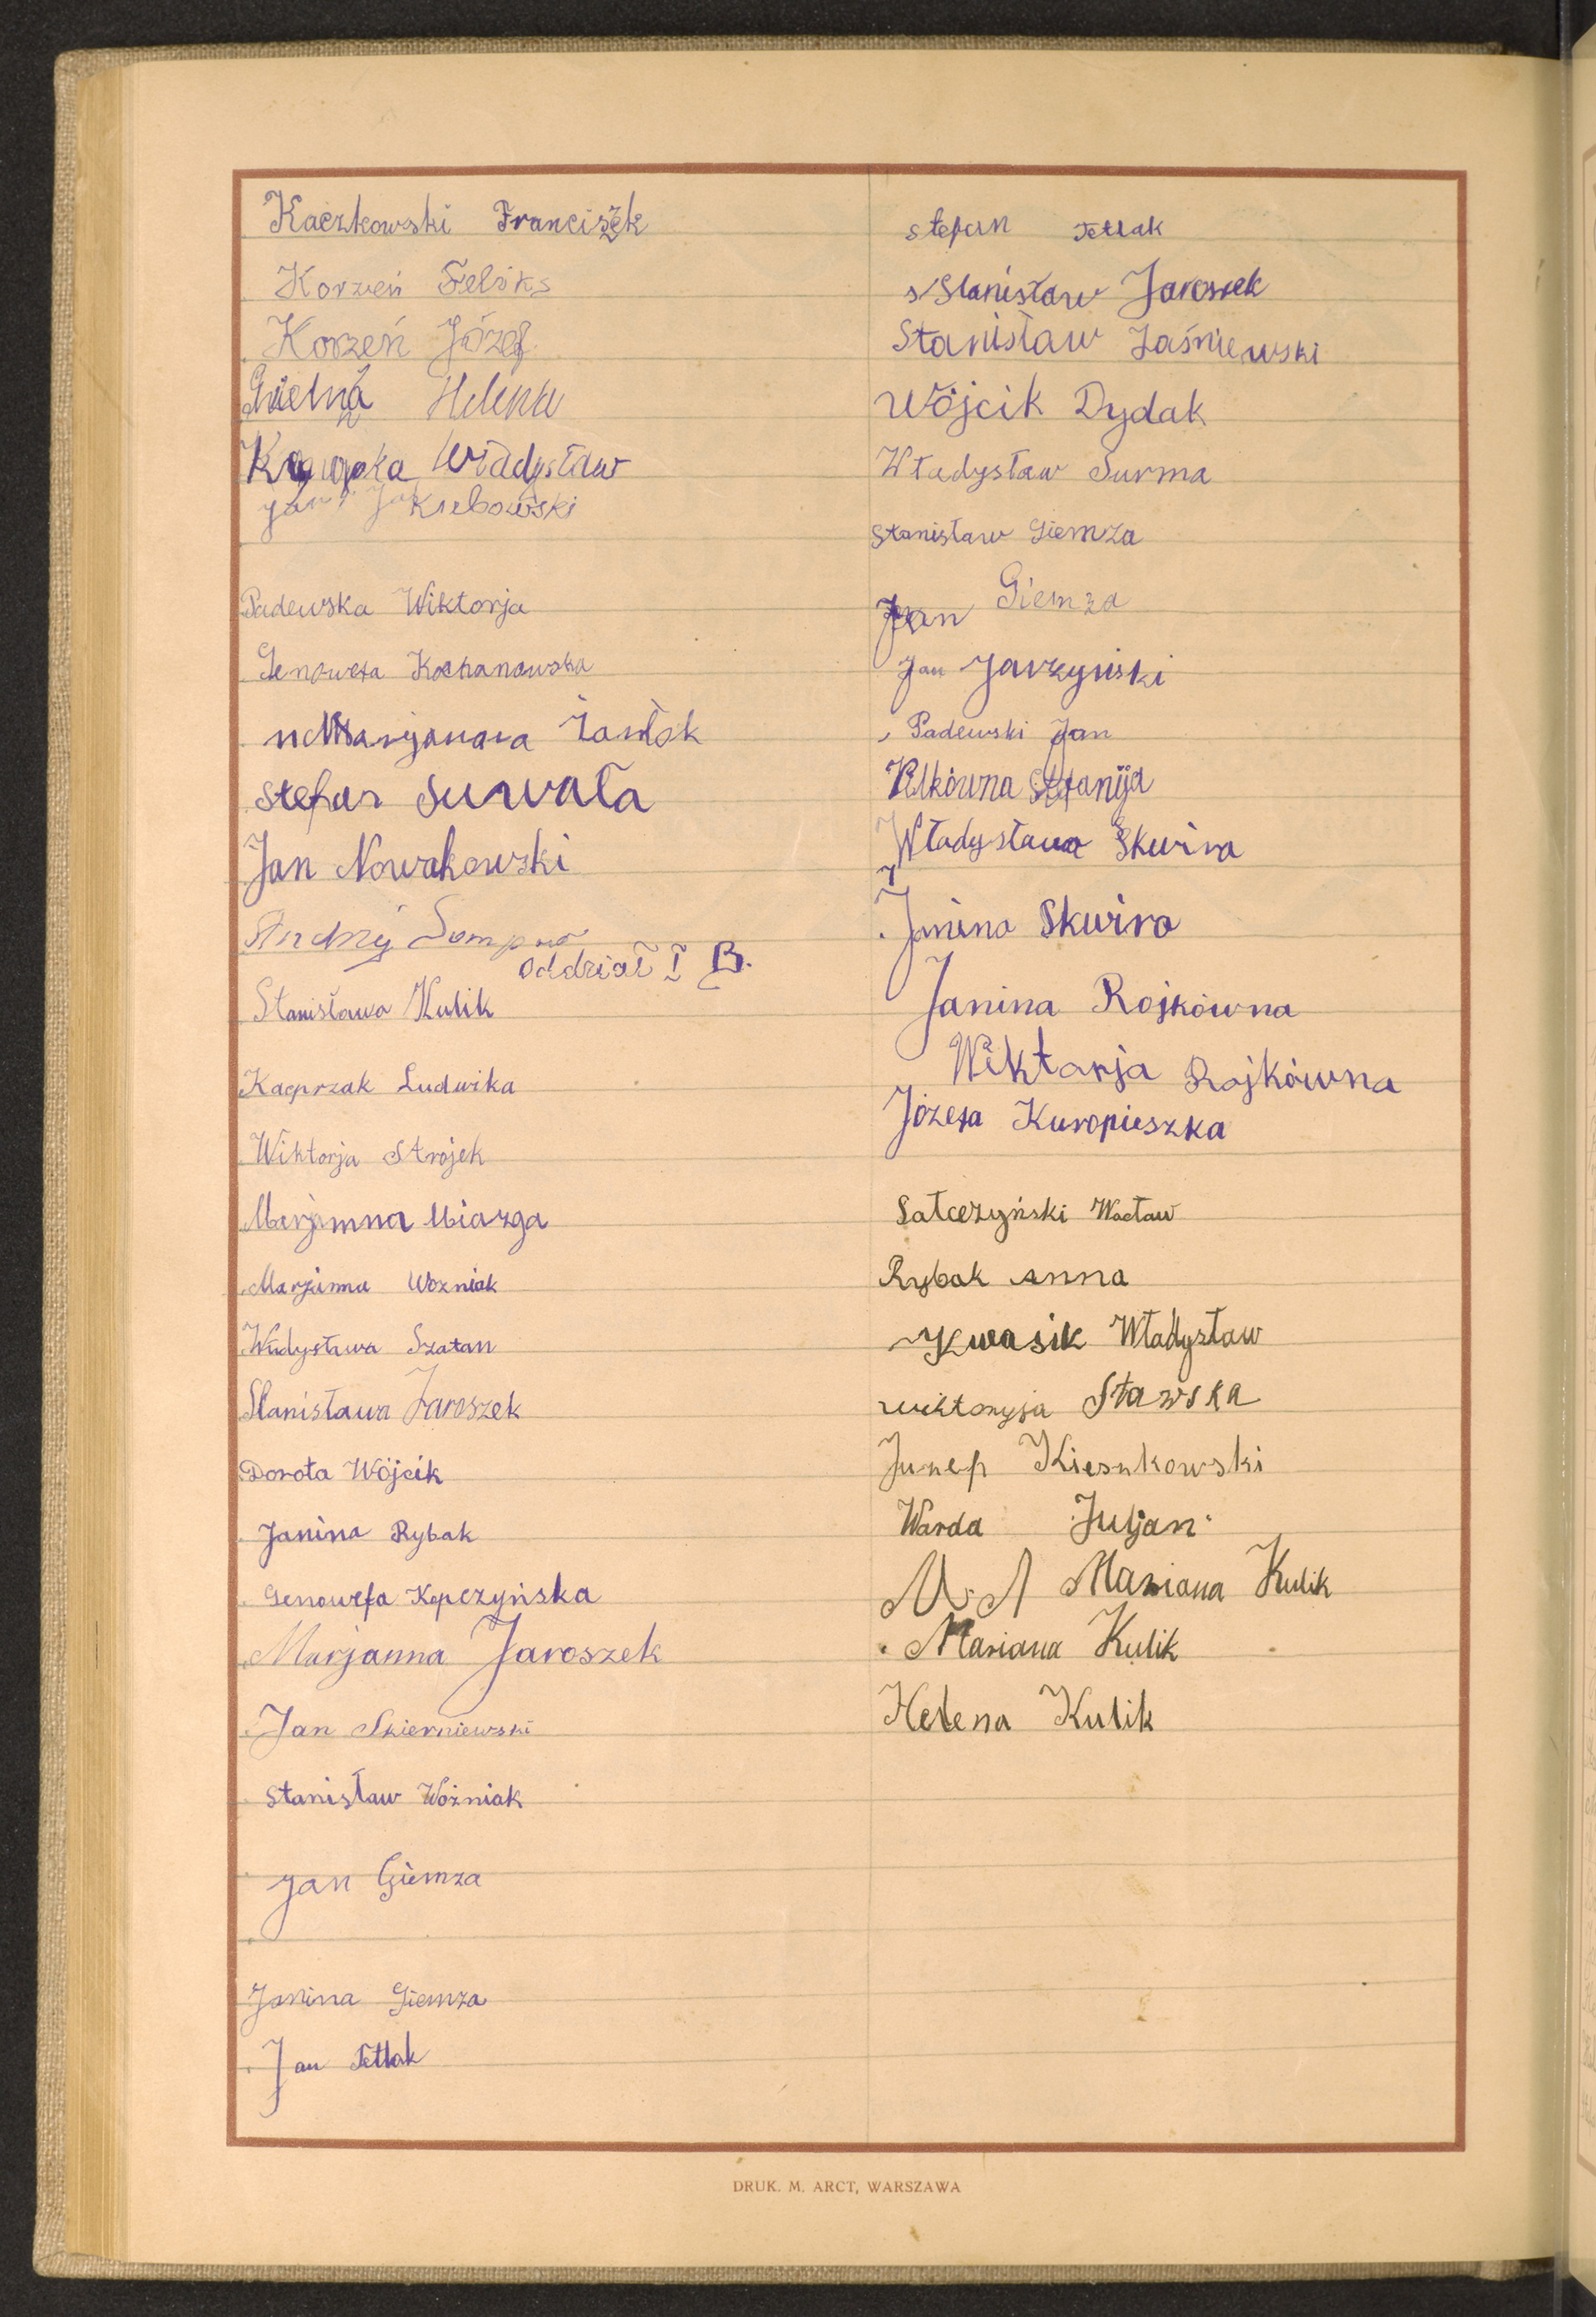 Kaczkowski Franciszek
Korzeń Feliks
Korzeń Józef
Helena
Władysław
Jan
Padewska Wiktorja
Genowefa Kochanowska
Stefan Surwała
Jan Nowakowski
Oddział I B.
Stanisława Kulik
Kacprzak Ludwika
Wiktorja Strojek
Marjanna Miazga
Marjanna Wozniak
Władysława Szatan
Stanisława Jaroszek
Dorota Wójcik
Janina Rybak
Genowefa Kopczyńska
Marjanna Jaroszek
Jan Skierniewski
Stanisław Woźniak
Jan Giemza
Janina Giemza
Jan Tetlak
Stefan Tetlak
Stanisław Jaroszek
Stanisław Jaśniewski
Wójcik Dydak
Władysław Surma
Stanisław Giemza
Jan Giemza
Jan Jarzyński
Padewski Jan
Stefanija
Władysława Skwira
Janina Skwira
Janina Rojkówna
Wiktarja Rojkówna
Józefa Kuropieszka
Sałczyński Wacław
Rybak Anna
Kwasik Władysław
Wiktoryja Stawska
Warda Juljan
M. Mariana Kulik
Mariana Kulik
Helena Kulik
DRUK. M. ARCT, WARSZAWA